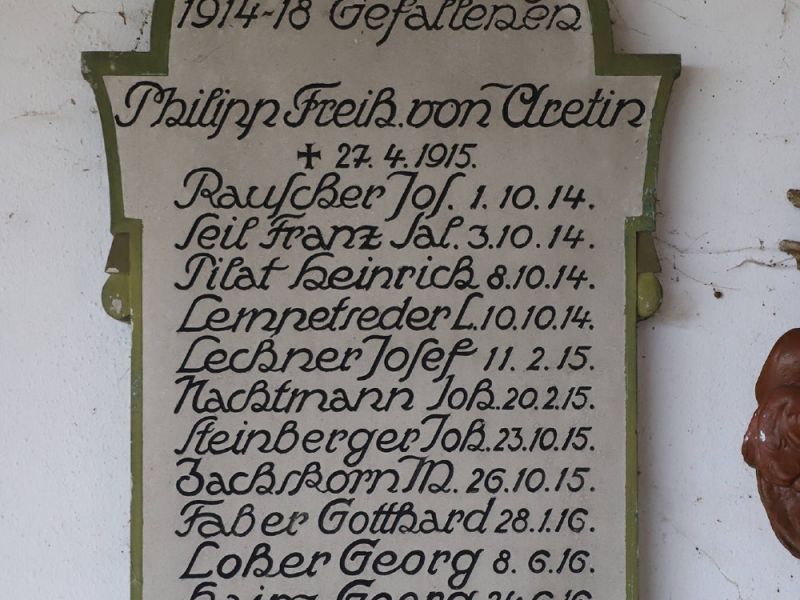 1914-18 Gefallenen
Philipp Freih. von Aretin
✠ 27. 4. 1915.
Rauscher Jos. 1. 10. 14.
Seil Franz Sal. 3.10. 14.
Pilat Heinrich 8.10.14.
Lempetseder L. 10.10.14.
Lechner Josef 11. 2. 15.
Nachtmann Joh. 20.2.15.
Steinberger Joh. 23.10.15.
Zachskorn M. 26.10.15.
Faber Gotthard 28.1.16.
Loher Georg 8. 6.16.
Georg